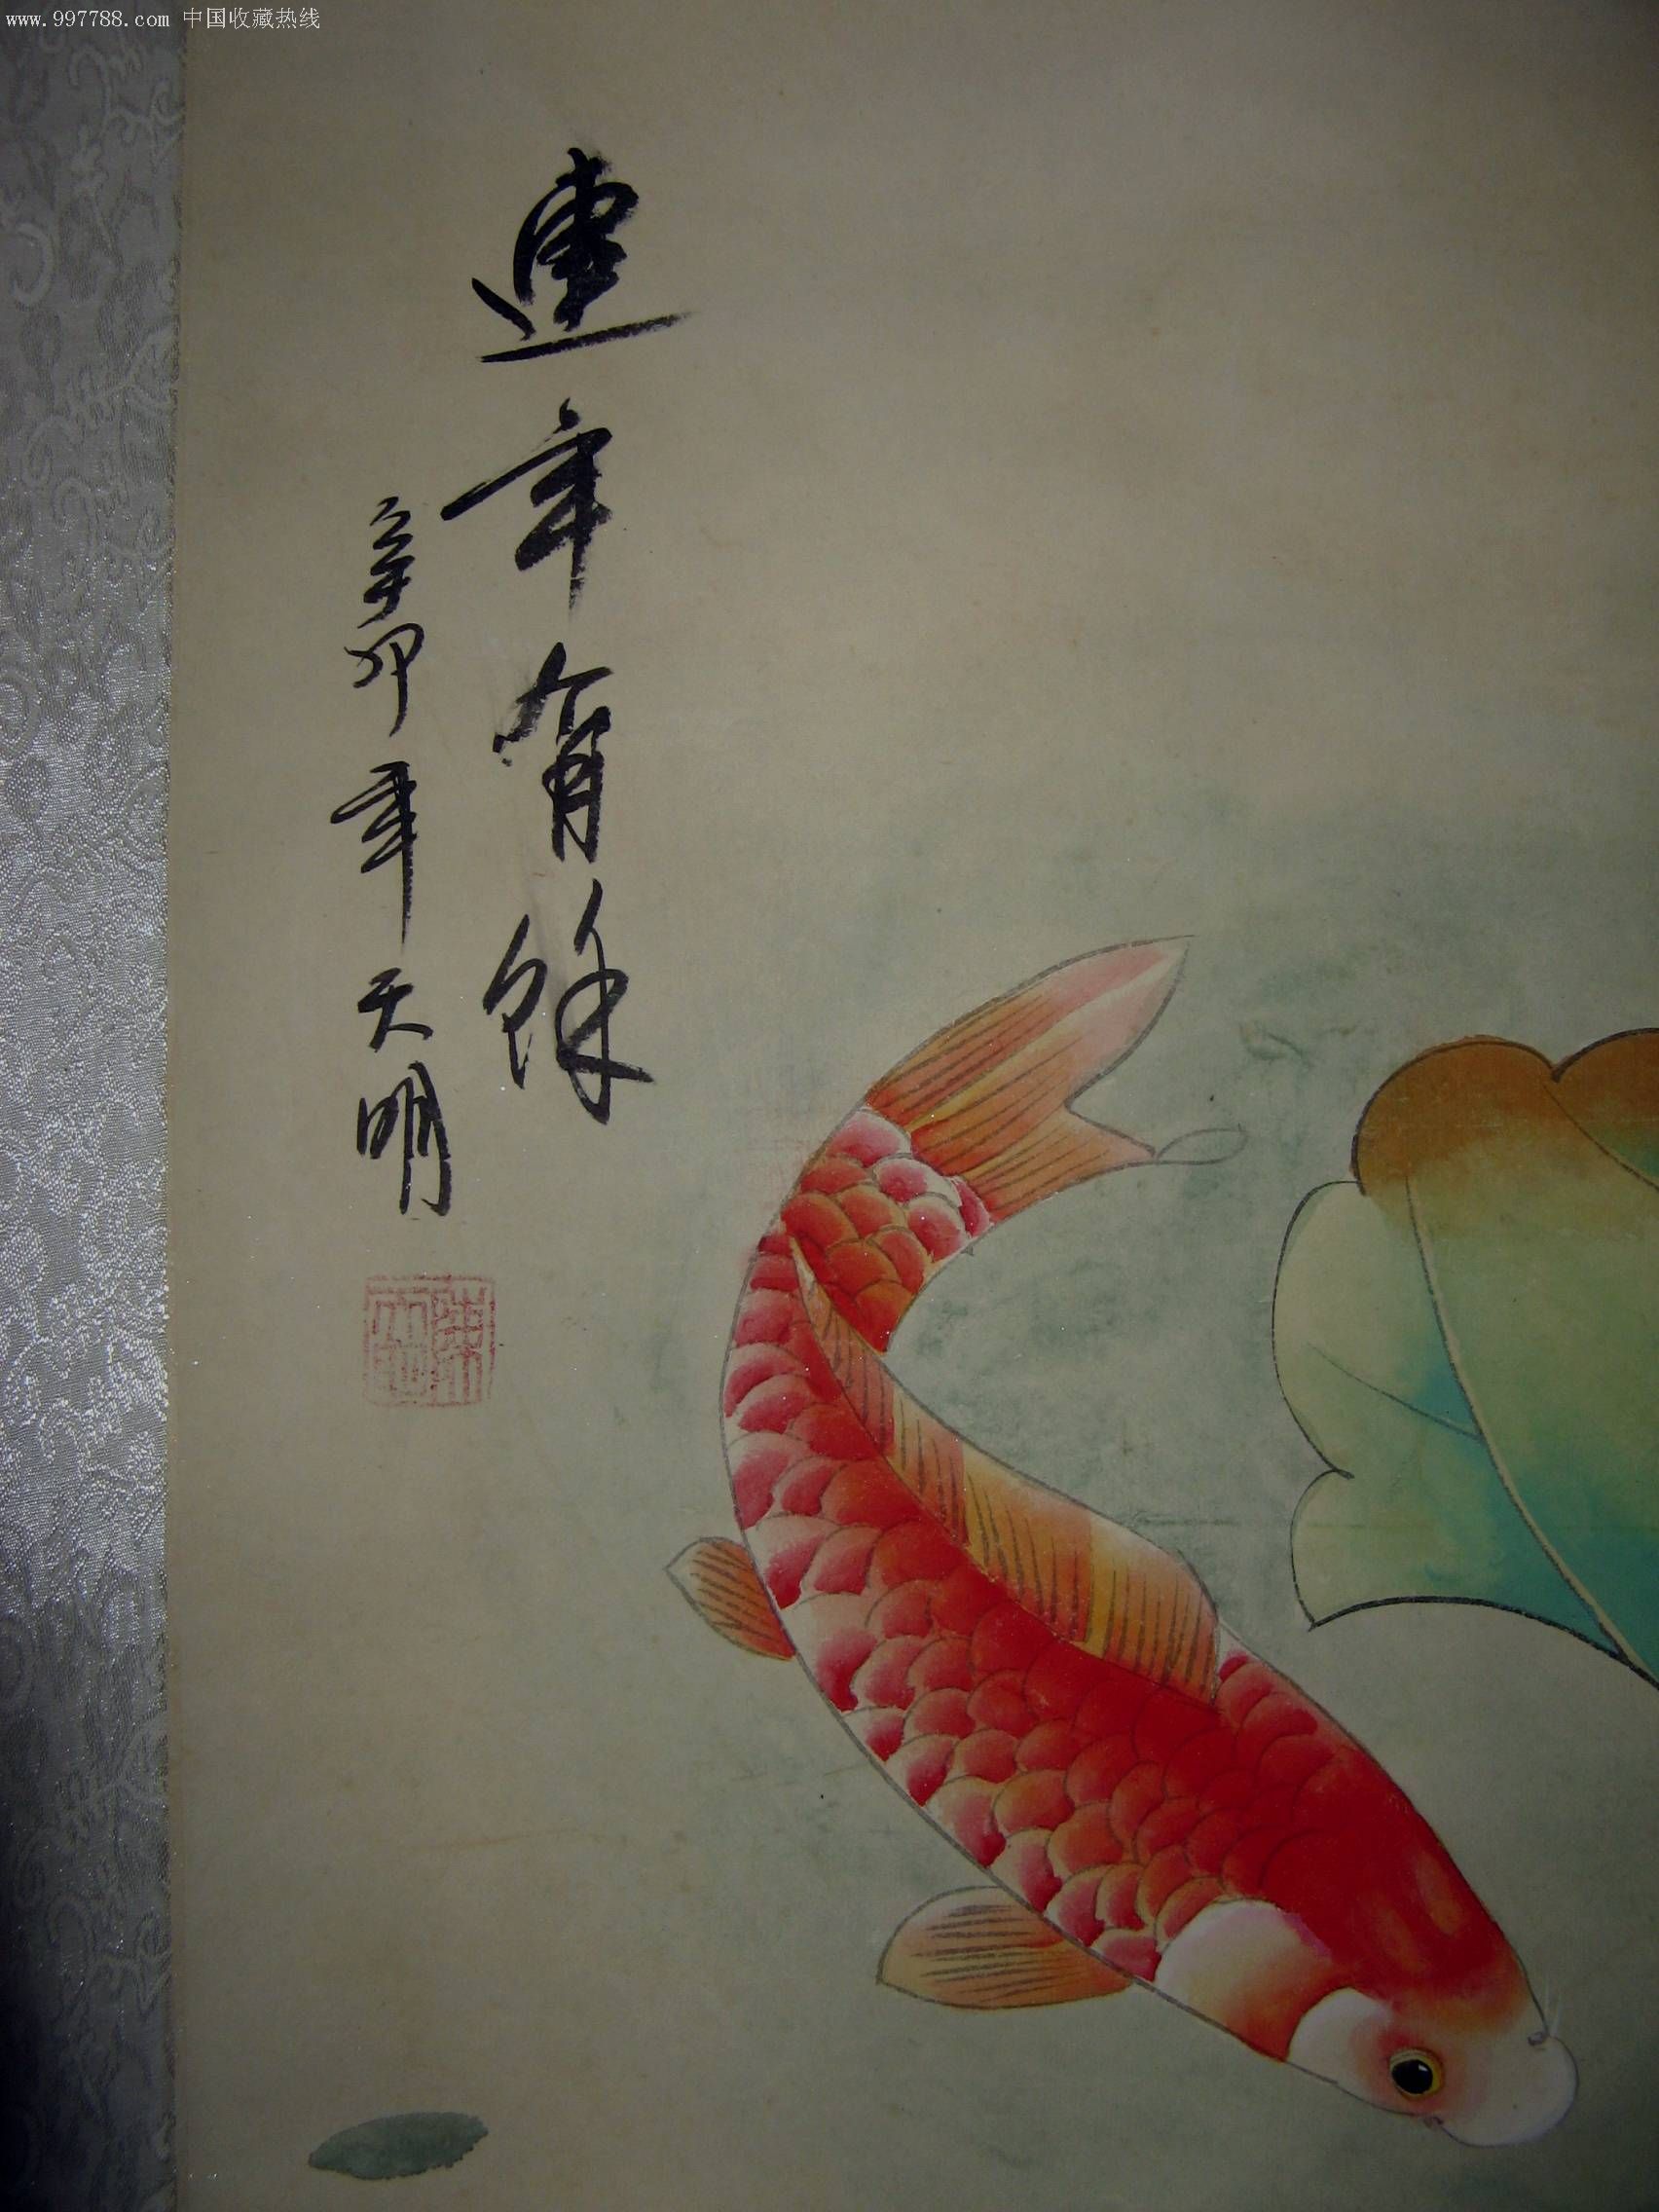 www.997788.com 中国收藏热线
連年有餘
辛卯年天明